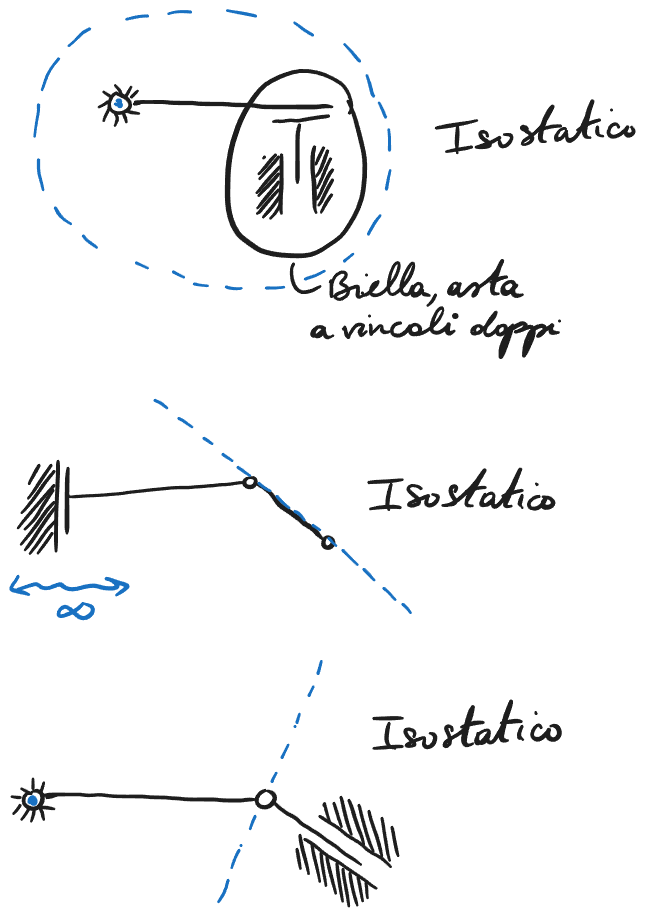 Isostatico
Biella, asta
a vincoli doppi
Isostatico
∞
Isostatico